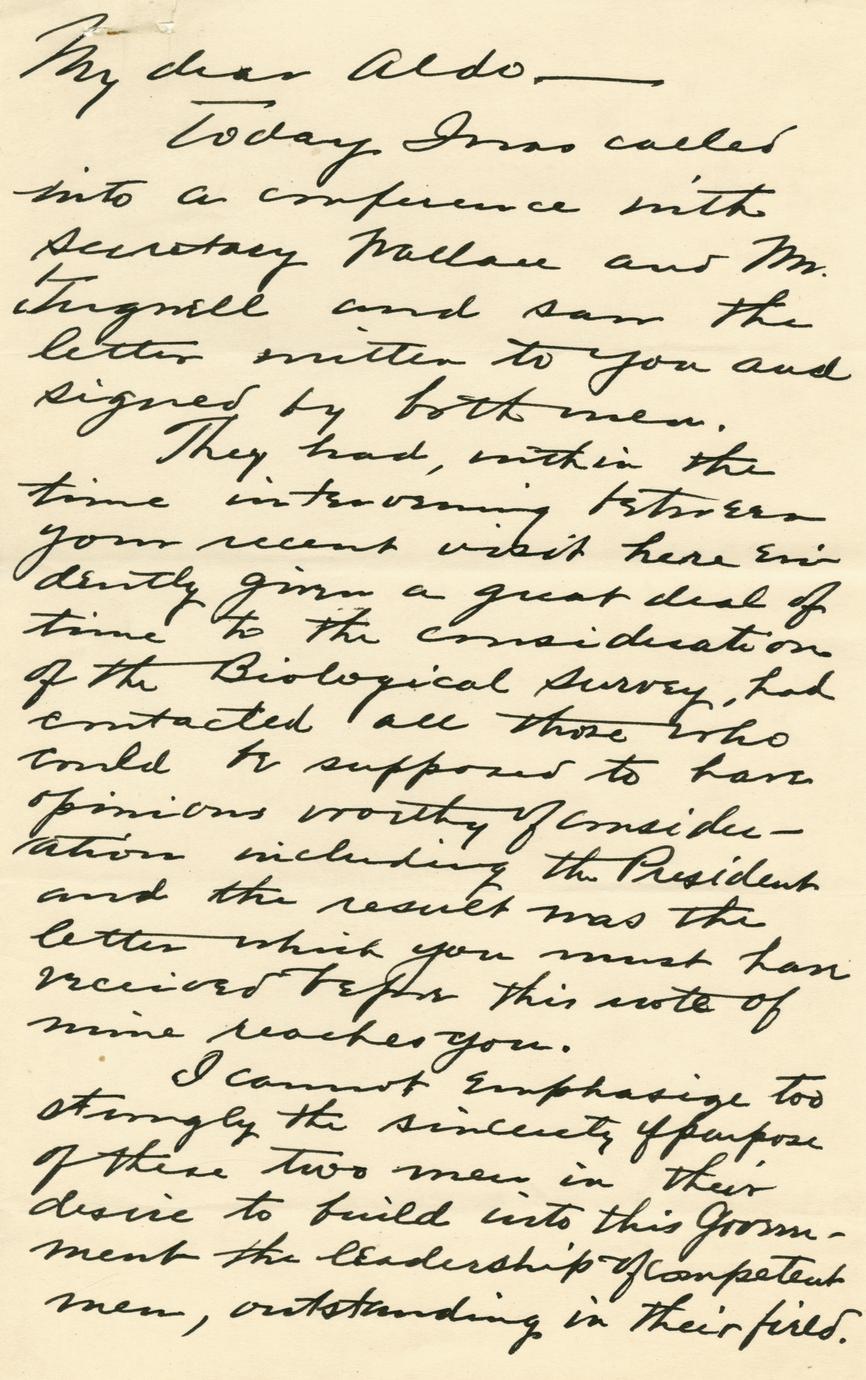 My dear Aldo —
Today I was called
into a conference with
Secretary Wallace and Mr.
Tugwell and saw the
letter written to you and
signed by both men.
They had, within the
time intervening between
your recent visit here evi
dently given a great deal of
time to the consideration
of the Biological Survey, had
contacted all those who
could be supposed to have
opinions worthy of consider-
ation including the President
and the result was the
letter which you must have
received before this note of
mine reaches you.
I cannot emphasize too
strongly the sincerety of purpose
of these two men in their
desire to build into this Govern-
ment the leadership of competent
men, outstanding in their field.